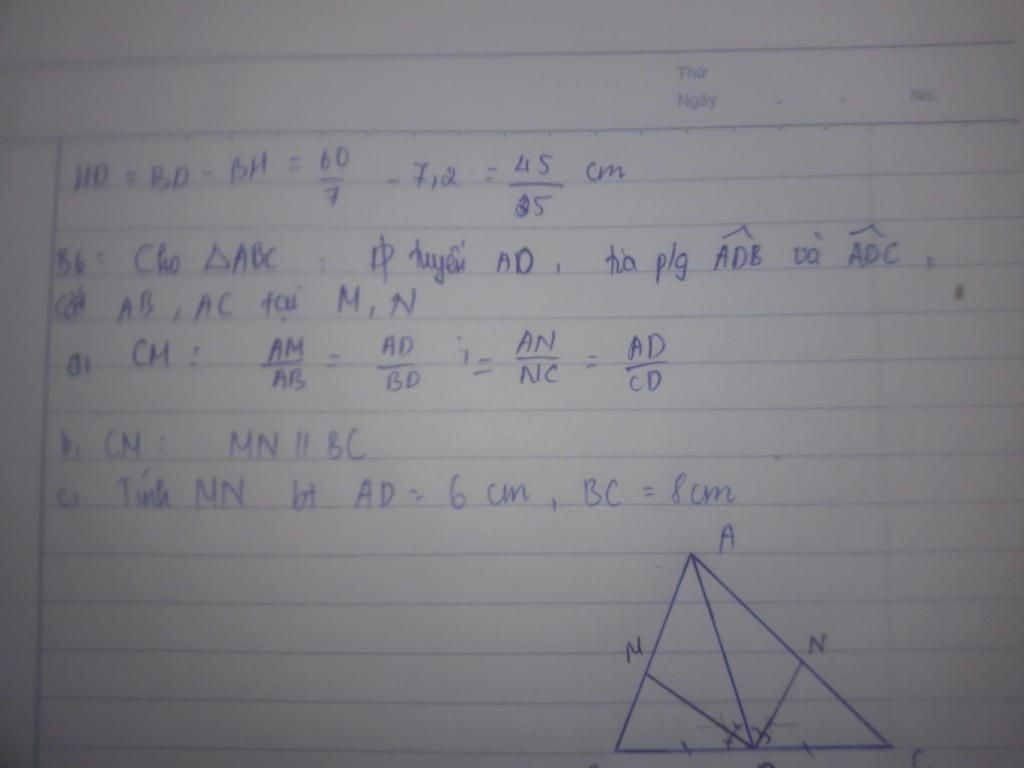 Thứ
Ngày No:
HD = BD - BH = 60/7 - 7,2 = 45/35 cm
B6: Cho △ABC : tuyến AD, tia p/g ADB và ADC,
cắt AB, AC tại M, N
a, CM: AM/AB = AD/BD ; = AN/NC = AD/CD
b, CM: MN // BC
c, Tính MN bt AD = 6 cm, BC = 8cm
A
M N